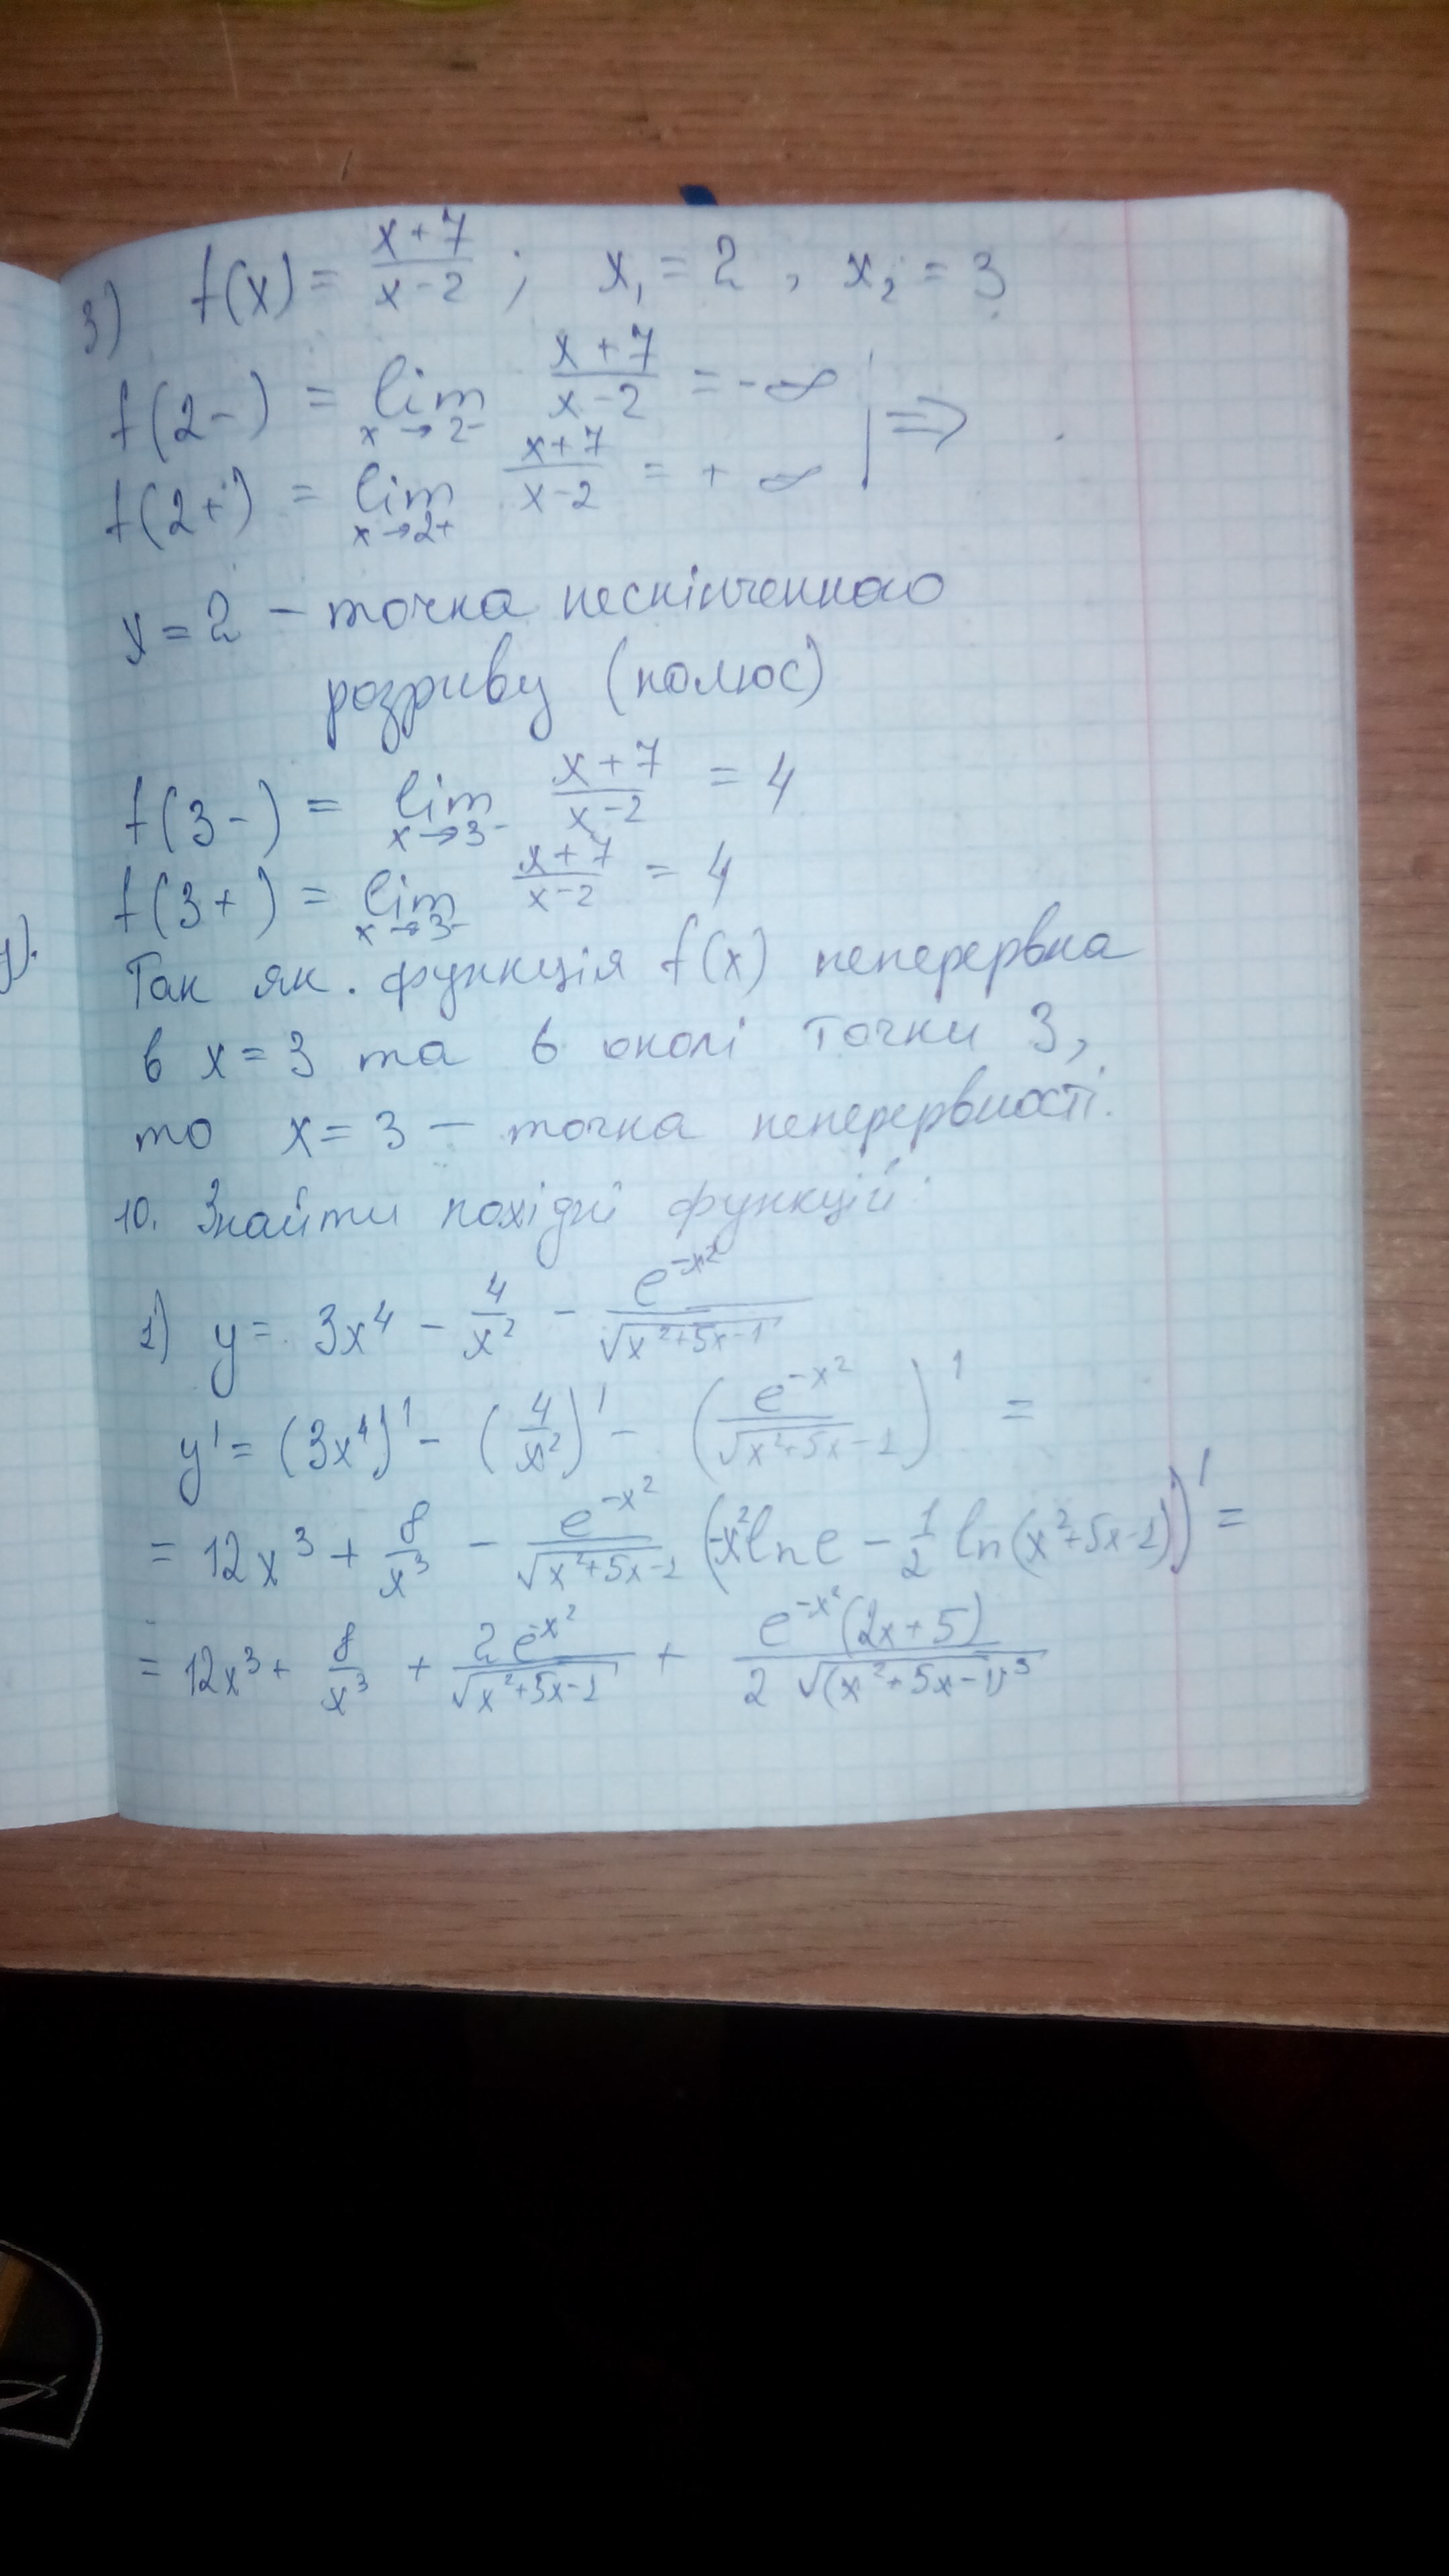 3) f(x) = (x+7)/(x-2) ; x₁ = 2 , x₂ = 3
f(2-) = lim x→2- (x+7)/(x-2) = -∞ | ⇒
f(2+) = lim x→2+ (x+7)/(x-2) = +∞
x = 2 – точка нескінченного
розриву (полюс)
f(3-) = lim x→3- (x+7)/(x-2) = 4
f(3+) = lim x→3- (x+7)/(x-2) = 4
Так як функція f(x) неперервна
в x = 3 та в околі точки 3,
то x = 3 – точка неперервності.
10. Знайти похідні функцій
1) y = 3x⁴ - 4/x² - e^(-x²)/√(x²+5x-1)
y' = (3x⁴)' - (4/x²)' - (e^(-x²)/√(x²+5x-1))' =
= 12x³ + 8/x³ - e^(-x²)/√(x²+5x-1) (-x² ln e - 1/2 ln(x²+5x-1))' =
= 12x³ + 8/x³ + 2e^(-x²)/√(x²+5x-1) + e^(-x²)(2x+5)/(2√(x²+5x-1)³)